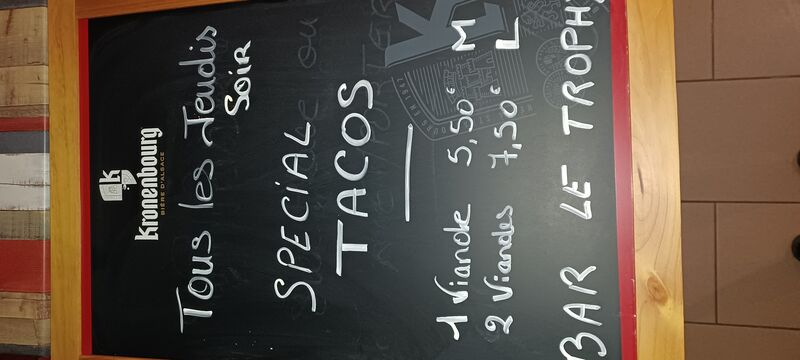 Kronenbourg
BIÈRE D'ALSACE
Tous les Jeudis
Soir
SPECIAL
TACOS
1 Viande 5,50€ M
2 Viandes 7,50€ L
BAR LE TROPH